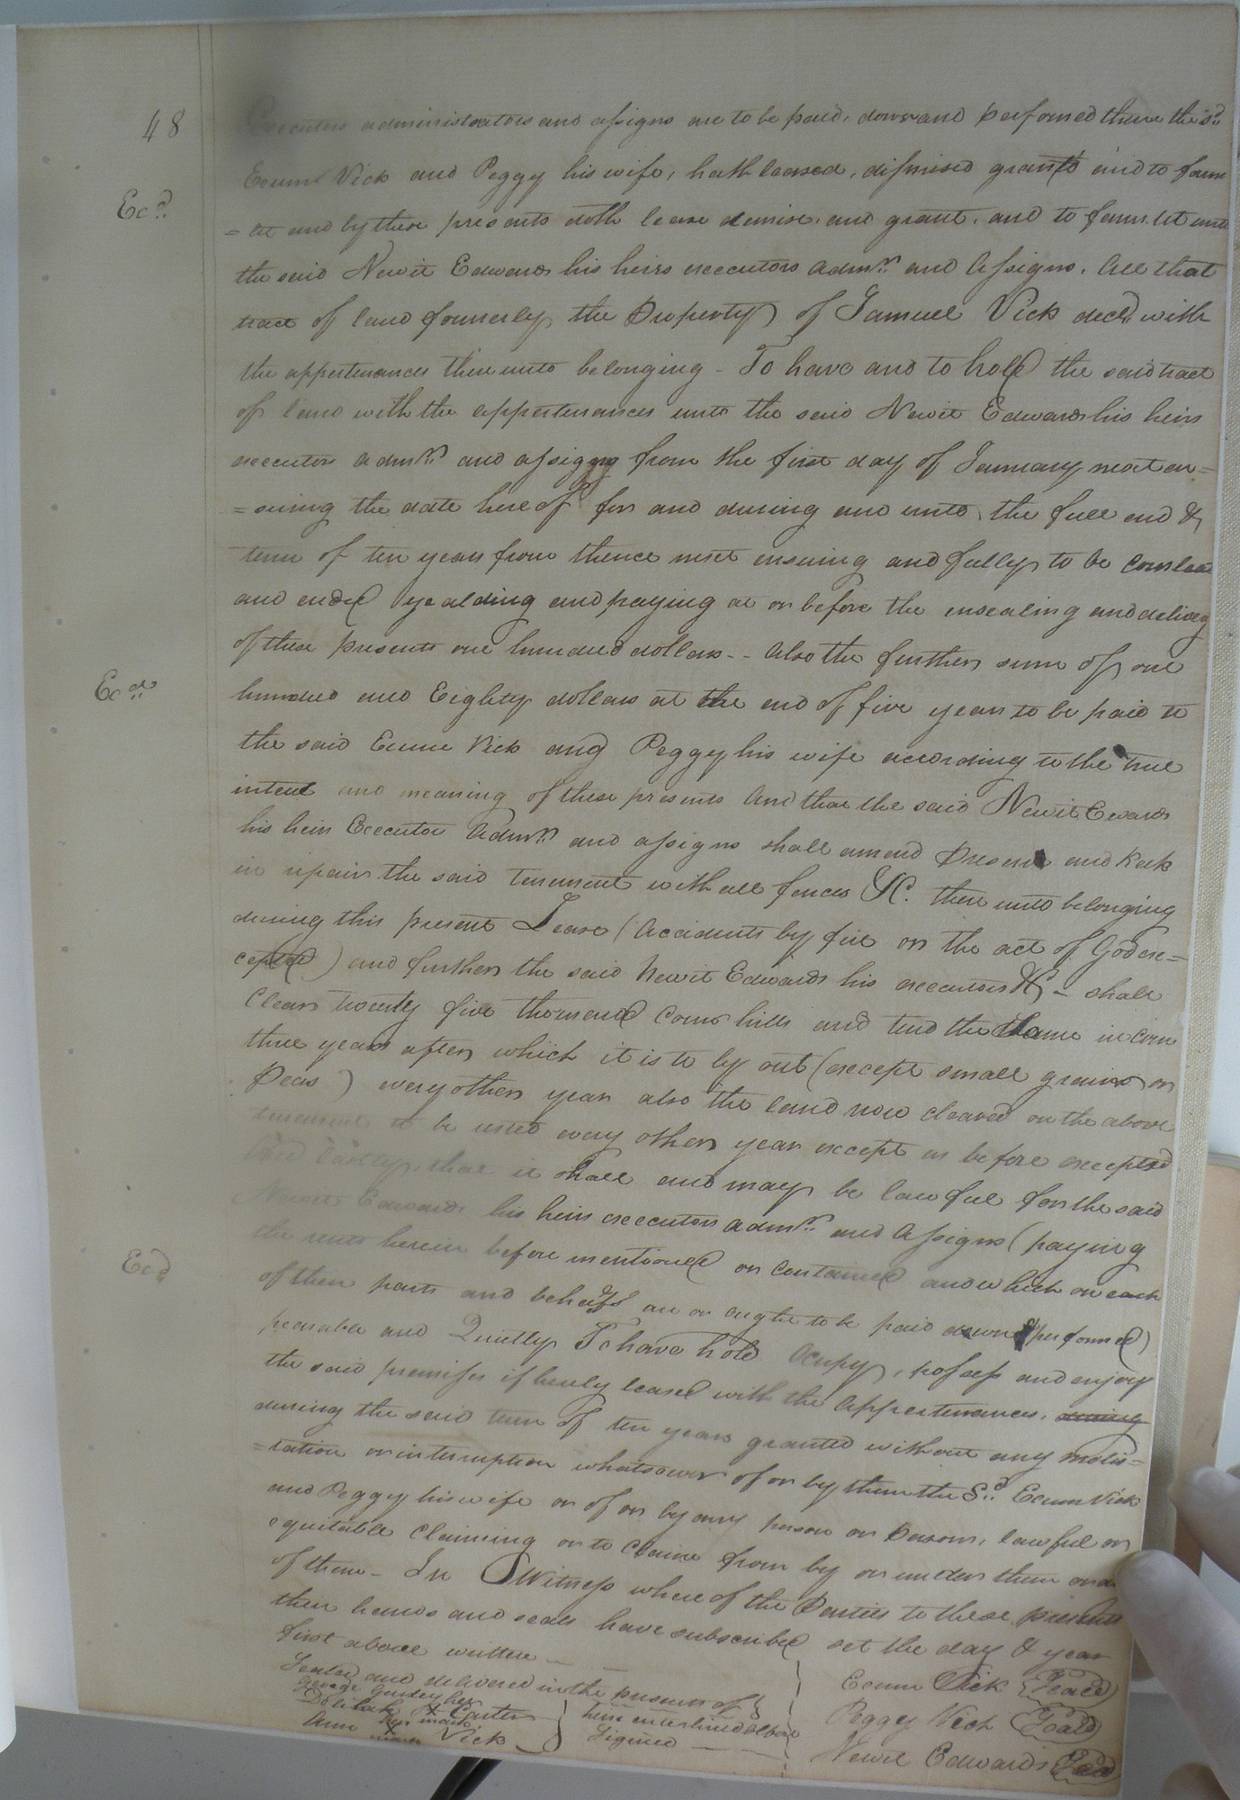 48
Executors administrators and assigns are to be paid, down and performed there the sd.
Ecum Vick and Peggy his wife, hath leased, dismised granted and to farm
= let and by these presents doth lease demise, and grant, and to farm let unto
Exd.
the said Newit Edwards his heirs executors admrs. and Assigns, All that
tract of land formerly the Property of Samuel Vick decd. with
the appertenances thereunto belonging - To have and to hold the said tract
of land with the appertenances unto the said Newit Edwards his heirs
executors admrs. and assigns from the first day of January next en=
=suing the date hereof for and during and unto the full end &
term of ten years from thence next ensuing and fully to be
and ended yealding and paying at or before the ensealing and delivery
of these presents one hundred dollars -- Also the further sum of one
Exd.
hundred and Eighty dollars at the end of five years to be paid to
the said Ecum Vick and Peggy his wife according to the true
intent and meaning of these presents And that the said Newit Edwards
his heirs Executor Admrs. and assigns shall amend Preserve and Keek
in repair the said tenement with all fences &C. thereunto belonging
during this present Lease (Accidents by fire or the act of God ex=
cepted) and further the said Newit Edwards his executors &C - shall
Clear twenty five thousand Corn hills and tend the same in corn
three years after which it is to by out (except small grains or
Peas) every other year also the land now cleared on the above
tenement to be used every other year except as before excepted
And Lastly, that it shall and may be lawful for the said
Newit Edwards his heirs executors admrs. and Assigns (paying
the rents herein before mentioned or contained and which on each
Exd
of their parts and behalfs are or ought to be paid down & performed)
peacable and Quietly To have hold Ocupy, possess and enjoy
the said premises if hereby leased with the Appertenances, during
during the said term of ten years granted without any molis=
=tation or interruption whatsoever of or by them the Sd. Ecum Vick
and Peggy his wife or of or by any person or Persons, lawful or
equitable Claiming or to Claim from by or under them or
of them - In Witness where of the Parties to these presents
their hands and seals have subscribed set the day & year
first above written --
Sealed and delivered in the presence of
George Gurley
her
Delilah X Carter
her mark
Ann X Vick
mark
here enterlined above
Signed
Ecum Vick (Seal)
Peggy Vick (Seal)
Newit Edwards (Seal)